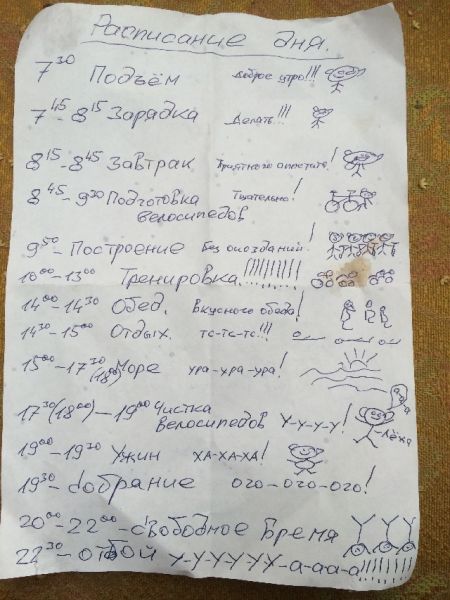 Расписание дня.
7³⁰ Подъём доброе утро!!!
7⁴⁵-8¹⁵ Зарядка Делать!!!
8¹⁵-8⁴⁵ Завтрак Приятного аппетита!
8⁴⁵-9³⁰ Подготовка велосипедов Тщательно!
9⁵⁰- Построение Без опозданий!
10⁰⁰-13⁰⁰ Тренировка!!!!!!!!!
14⁰⁰-14³⁰ Обед. Вкусного обеда!
14³⁰-15⁰⁰ Отдых. тс-тс-тс!!!
15⁰⁰-17³⁰ (18⁰⁰) Море ура-ура-ура!
17³⁰(18⁰⁰)-19⁰⁰ Чистка велосипедов У-у-у-у! Лёха
19⁰⁰-19³⁰ Ужин ХА-ХА-ХА!
19³⁰- Собрание ого-ого-ого!
20⁰⁰-22⁰⁰-свободное Время
22³⁰-отбой У-У-УУ-УУ-а-аа-а!!!!!!!!